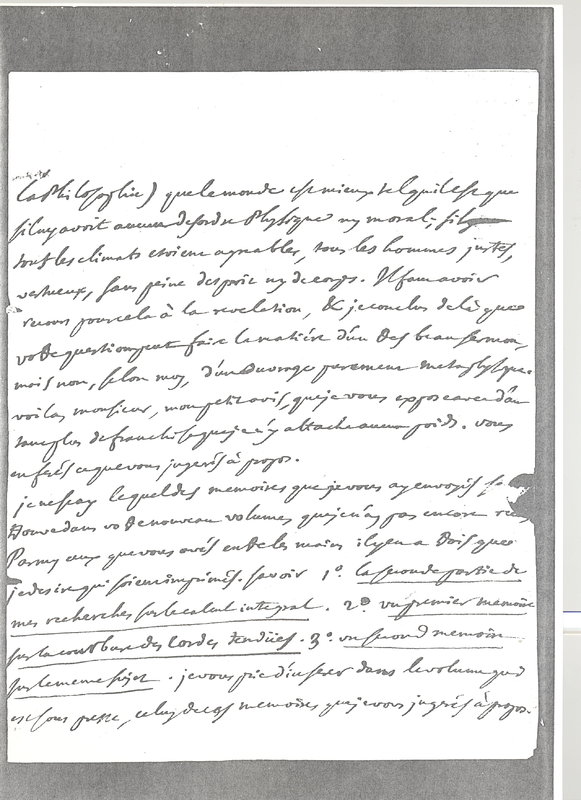 la Philosophie) que le monde est mieux tel qu'il est que
s'il n'y avoit aucun desordre Physique ny moral;
tous les climats etoient agreables, tous les hommes justes,
vertueux, sans peine d'esprit ny de corps. Il faut avoir
recours pour cela à la revelation, & je conclus de là que
votre question peut faire la matière d'un très beau sermon,
mais non, selon moy, d'un ouvrage purement metaphysique.
voila, monsieur, mon petit avis, que je vous expose avec d'au
tant plus de franchise que je n'y attache aucun poids. vous
en ferés ce que vous jugerés à propos.
je ne sçay lequel des memoires que je vous ay envoyés se
trouve dans votre nouveau volume, que je n'ay pas encore reçu
Parmy ceux que vous avés entre les mains il y en a trois que
je desire qui soient imprimés. savoir 1°. la seconde partie de
mes recherches sur le calcul integral. 2° un premier memoire
sur la courbure des cordes tendües. 3°. un second memoire
sur le meme sujet. je vous prie d'inserer dans le volume qui
est sous presse, celuy de ces memoires que vous jugerés à propos.